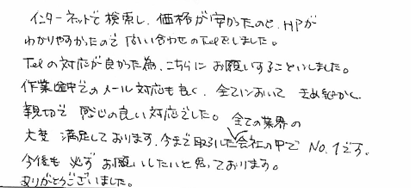 インターネットで検索し、価格が安かったのと、HPが
わかりやすかったので問い合わせのTelをしました。
Telの対応が良かった為、こちらにお願いすることにしました。
作業途中でのメール対応も良く、全てにおいてきめ細かく
親切で感じの良い対応でした。全ての業界の
大変満足しております。今まで取引した会社の中でNo.1です。
今後も必ずお願いしたいと思っております。
ありがとうございました。